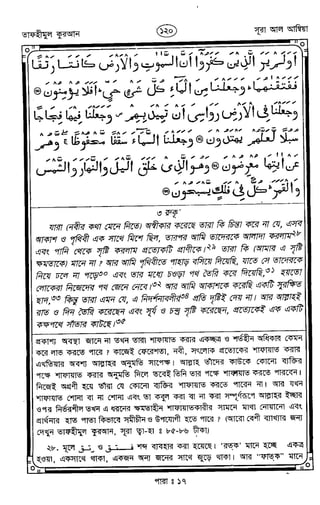 তাফহীমুল কুরআন
১২০
সূরা আল আম্বিয়া
أَوَلَمْ يَرَ الَّذِينَ كَفَرُوا أَنَّ السَّمٰوٰتِ وَالْأَرْضَ كَانَتَا رَتْقًا
فَفَتَقْنٰهُمَا وَجَعَلْنَا مِنَ الْمَاءِ كُلَّ شَيْءٍ حَيٍّ أَفَلَا يُؤْمِنُونَ
وَجَعَلْنَا فِي الْأَرْضِ رَوَاسِيَ أَنْ تَمِيدَ بِهِمْ وَجَعَلْنَا فِيهَا فِجَاجًا
سُبُلًا لَعَلَّهُمْ يَهْتَدُونَ وَجَعَلْنَا السَّمَاءَ سَقْفًا مَحْفُوظًا وَهُمْ
عَنْ آيٰتِهَا مُعْرِضُونَ وَهُوَ الَّذِي خَلَقَ اللَّيْلَ وَالنَّهَارَ وَالشَّمْسَ
وَالْقَمَرَ كُلٌّ فِي فَلَكٍ يَسْبَحُونَ
৩ রুকূ'
যারা (নবীর কথা মেনে নিতে) অস্বীকার করেছে তারা কি চিন্তা করে না যে, এসব
আকাশ ও পৃথিবী এক সাথে মিশে ছিল, তারপর আমি তাদেরকে আলাদা করলাম২৮
এবং পানি থেকে সৃষ্টি করলাম প্রত্যেকটি প্রাণীকে।২৯ তারা কি (আমার এ সৃষ্টি
ক্ষমতাকে) মানে না? আর আমি পৃথিবীতে পাহাড় বসিয়ে দিয়েছি, যাতে সে তাদেরকে
নিয়ে ঢলে না পড়ে৩০ এবং তার মধ্যে চওড়া পথ তৈরি করে দিয়েছি,৩১ হয়তো
লোকেরা নিজেদের পথ জেনে নেবে।৩২ আর আমি আকাশকে করেছি একটি সুরক্ষিত
ছাদ,৩৩ কিন্তু তারা এমন যে, এ নিদর্শনাবলীর৩৪ প্রতি দৃষ্টিই দেয় না। আর আল্লাহই
রাত ও দিন তৈরি করেছেন এবং সূর্য ও চন্দ্র সৃষ্টি করেছেন, প্রত্যেকেই এক একটি
কক্ষপথে সাঁতার কাটছে।৩৫
প্রকাশ্য অবস্থা জানে না তখন তারা শাফায়াত করার একচ্ছত্র ও শর্তহীন অধিকার কেমন
করে লাভ করতে পারে? কাজেই ফেরেশতা, নবী, সৎলোক প্রত্যেকের শাফায়াত করার
এখতিয়ার অবশ্য আল্লাহর অনুমতি সাপেক্ষ। আল্লাহ তাঁদের কাউকে কোনো ব্যক্তির
পক্ষে শাফায়াত করার অনুমতি দিলে তবেই তিনি তার পক্ষে শাফায়াত করতে পারবেন।
নিজেই অগ্রণী হয়ে তাঁরা যে কোনো ব্যক্তির শাফায়াত করতে পারেন না। আর যখন
শাফায়াত শোনা বা না শোনা এবং তা কবুল করা বা না করা সম্পূর্ণরূপে আল্লাহর ইচ্ছার
ওপর নির্ভরশীল তখন এ ধরনের ক্ষমতাহীন শাফায়াতকারীর সামনে মাথা নোয়ানো এবং
প্রার্থনার হাত পাতা কিভাবে সমীচীন ও উপযোগী হতে পারে? (আরো বেশী ব্যাখ্যার জন্য
দেখুন তাফহীমুল কুরআন, সূরা ত্বা-হা ঃ ৮৫-৮৬ টীকা)।
২৮. মূলে رتق ও فتق শব্দ ব্যবহার করা হয়েছে। 'রত্ক' মানে হচ্ছে একত্র
হওয়া, একসাথে থাকা, একজন অন্য জনের সাথে জুড়ে থাকা। আর "ফাত্ক" মানে
পারা ঃ ১৭